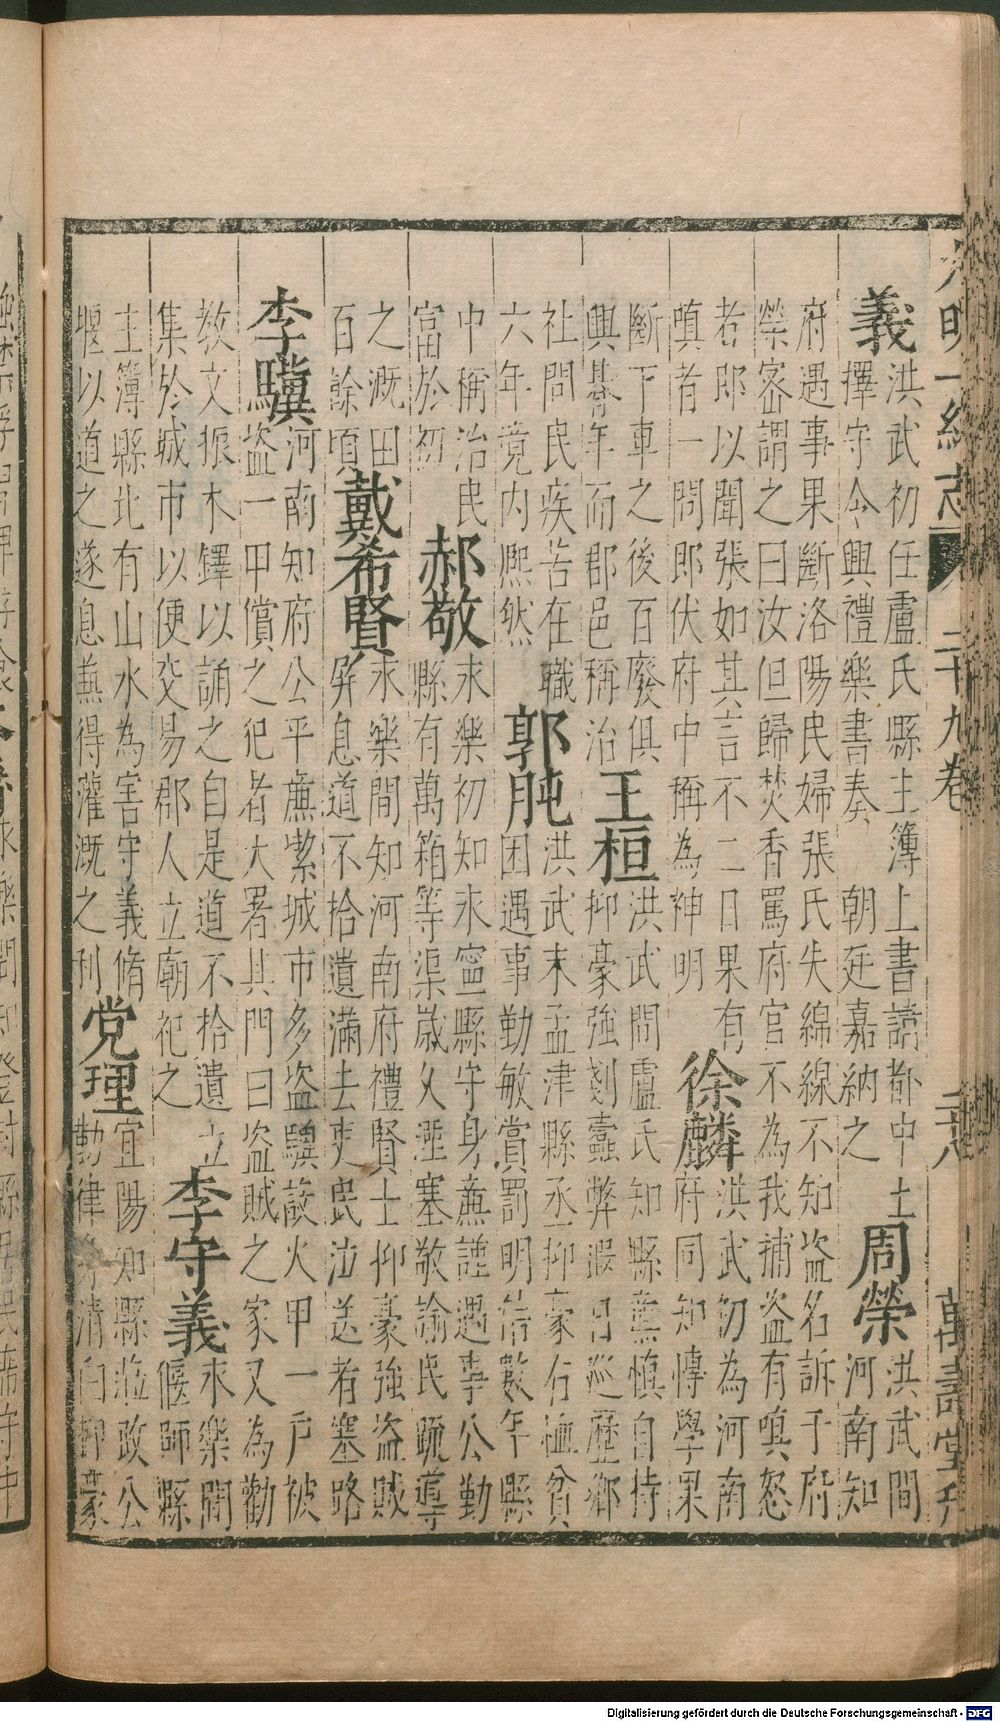 大明一統志 二十九卷 二十八 萬壽堂刊
義
洪武初任盧氏縣主簿上書請都中土
擇守令興禮樂書奏 朝廷嘉納之
周榮
洪武間
河南知
府遇事果斷洛陽民婦張氏失綿線不知盜名訴于府
榮密謂之曰汝但歸焚香罵府官不為我捕盜有嗔怒
者郎以聞張如其言不二日果有
嗔者一問郎伏府中稱為神明
徐麟
洪武初為河南
府同知慱學果
斷下車之後百廢俱
興朞年而郡邑稱治
王桓
洪武間盧氏知縣亷慎自持
抑豪強剗蠹弊暇日巡歷鄉
社問民疾苦在職
六年竟内熈然
郭肫
洪武末孟津縣丞抑豪右恤貧
困遇事勤敏賞罰明信數年縣
中稱治民
富於初
郝敬
永樂初知永寧縣守身亷謹遇事公勤
縣有萬箱等渠歲久湮塞敬諭民䟽導
之溉田
百餘頃
戴希賢
永樂間知河南府禮賢士抑豪強盜賊
屏息道不拾遺滿去吏民泣送者塞路
李驥
河南知府公平亷潔城市多盜驥設火甲一戶被
盜一甲償之犯者大署其門曰盜賊之家又為勸
教文振木鐸以誦之自是道不拾遺立
集於城市以便交易郡人立廟祀之
李守義
永樂間
偃師縣
主簿縣北有山水為害守義脩
堰以道之遂息兼得灌溉之利
党理
宜陽知縣蒞政公
勤律身清白鋤豪
Digitalisierung gefördert durch die Deutsche Forschungsgemeinschaft - DFG